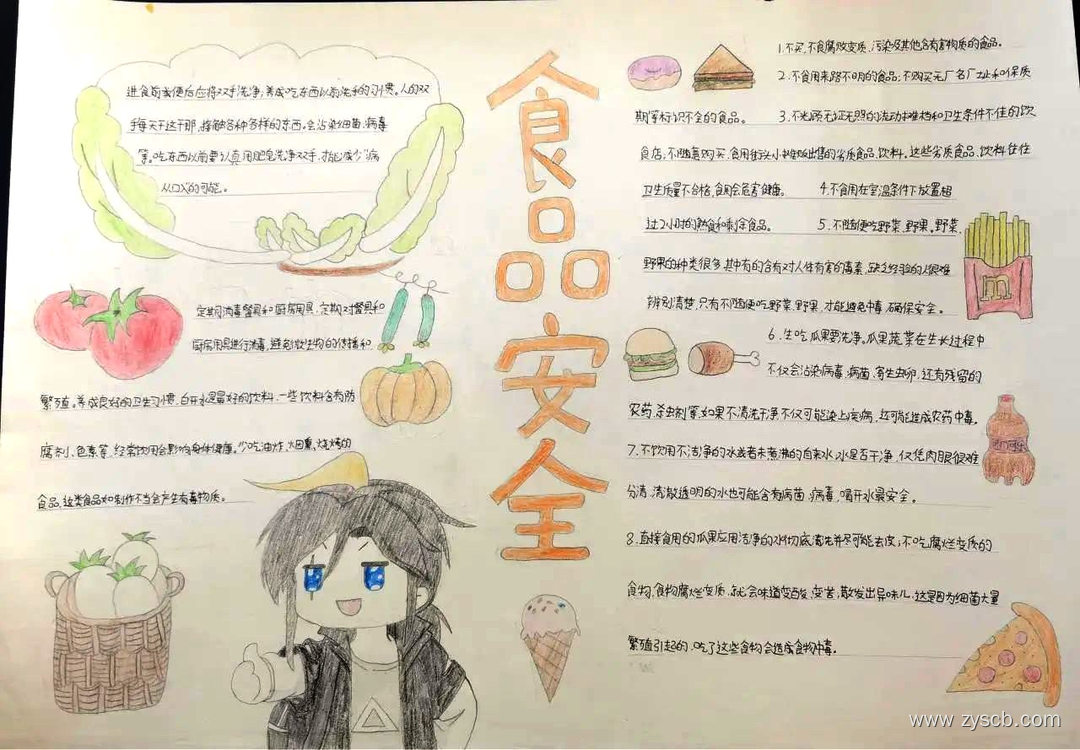 进食前或便后应将双手洗净,养成吃东西以前洗手的习惯。人的双
手每天干这干那,接触各种各样的东西。会沾染细菌、病毒
等。吃东西以前要认真用肥皂洗净双手,才能减少“病
从口入”的可能。
定期消毒餐具和厨房用具,定期对餐具和
厨房用具进行消毒,避免微生物的传播和
繁殖。养成良好的卫生习惯,白开水是最好的饮料,一些饮料含有防
腐剂、色素等,经常饮用会影响身体健康。少吃油炸、烟熏、烧烤的
食品,这类食品如制作不当会产生有毒物质。
食品安全
1.不买,不食腐败变质、污染及其他含有害物质的食品。
2.不食用来路不明的食品;不购买无厂名厂址和保质
期等标识不全的食品。 3.不光顾无证无照的流动摊档和卫生条件不佳的饮
食店;不随意购买、食用街头小摊贩出售的劣质食品、饮料。这些劣质食品、饮料往往
卫生质量不合格,食用会危害健康。 4.不食用在室温条件下放置超
过2小时的熟食和剩余食品。 5.不随便吃野菜、野果。野菜、
野果的种类很多,其中有的含有对人体有害的毒素,缺乏经验的人很难
辨别清楚,只有不随便吃野菜、野果,才能避免中毒,确保安全。
6.生吃瓜果要洗净。瓜果蔬菜在生长过程中
不仅会沾染病毒、病菌、寄生虫卵,还有残留的
农药、杀虫剂等,如果不清洗干净,不仅可能染上疾病,还可能造成农药中毒。
7.不饮用不洁净的水或者未煮沸的自来水,水是否干净,仅凭肉眼很难
分清,清澈透明的水也可能含有病菌、病毒,喝开水最安全。
8.直接食用的瓜果应用洁净的水彻底清洗并尽可能去皮;不吃腐烂变质的
食物,食物腐烂变质,就会味道变酸、变苦,散发出异味儿,这是因为细菌大量
繁殖引起的,吃了这些食物会造成食物中毒。
m
www.zyscb.com